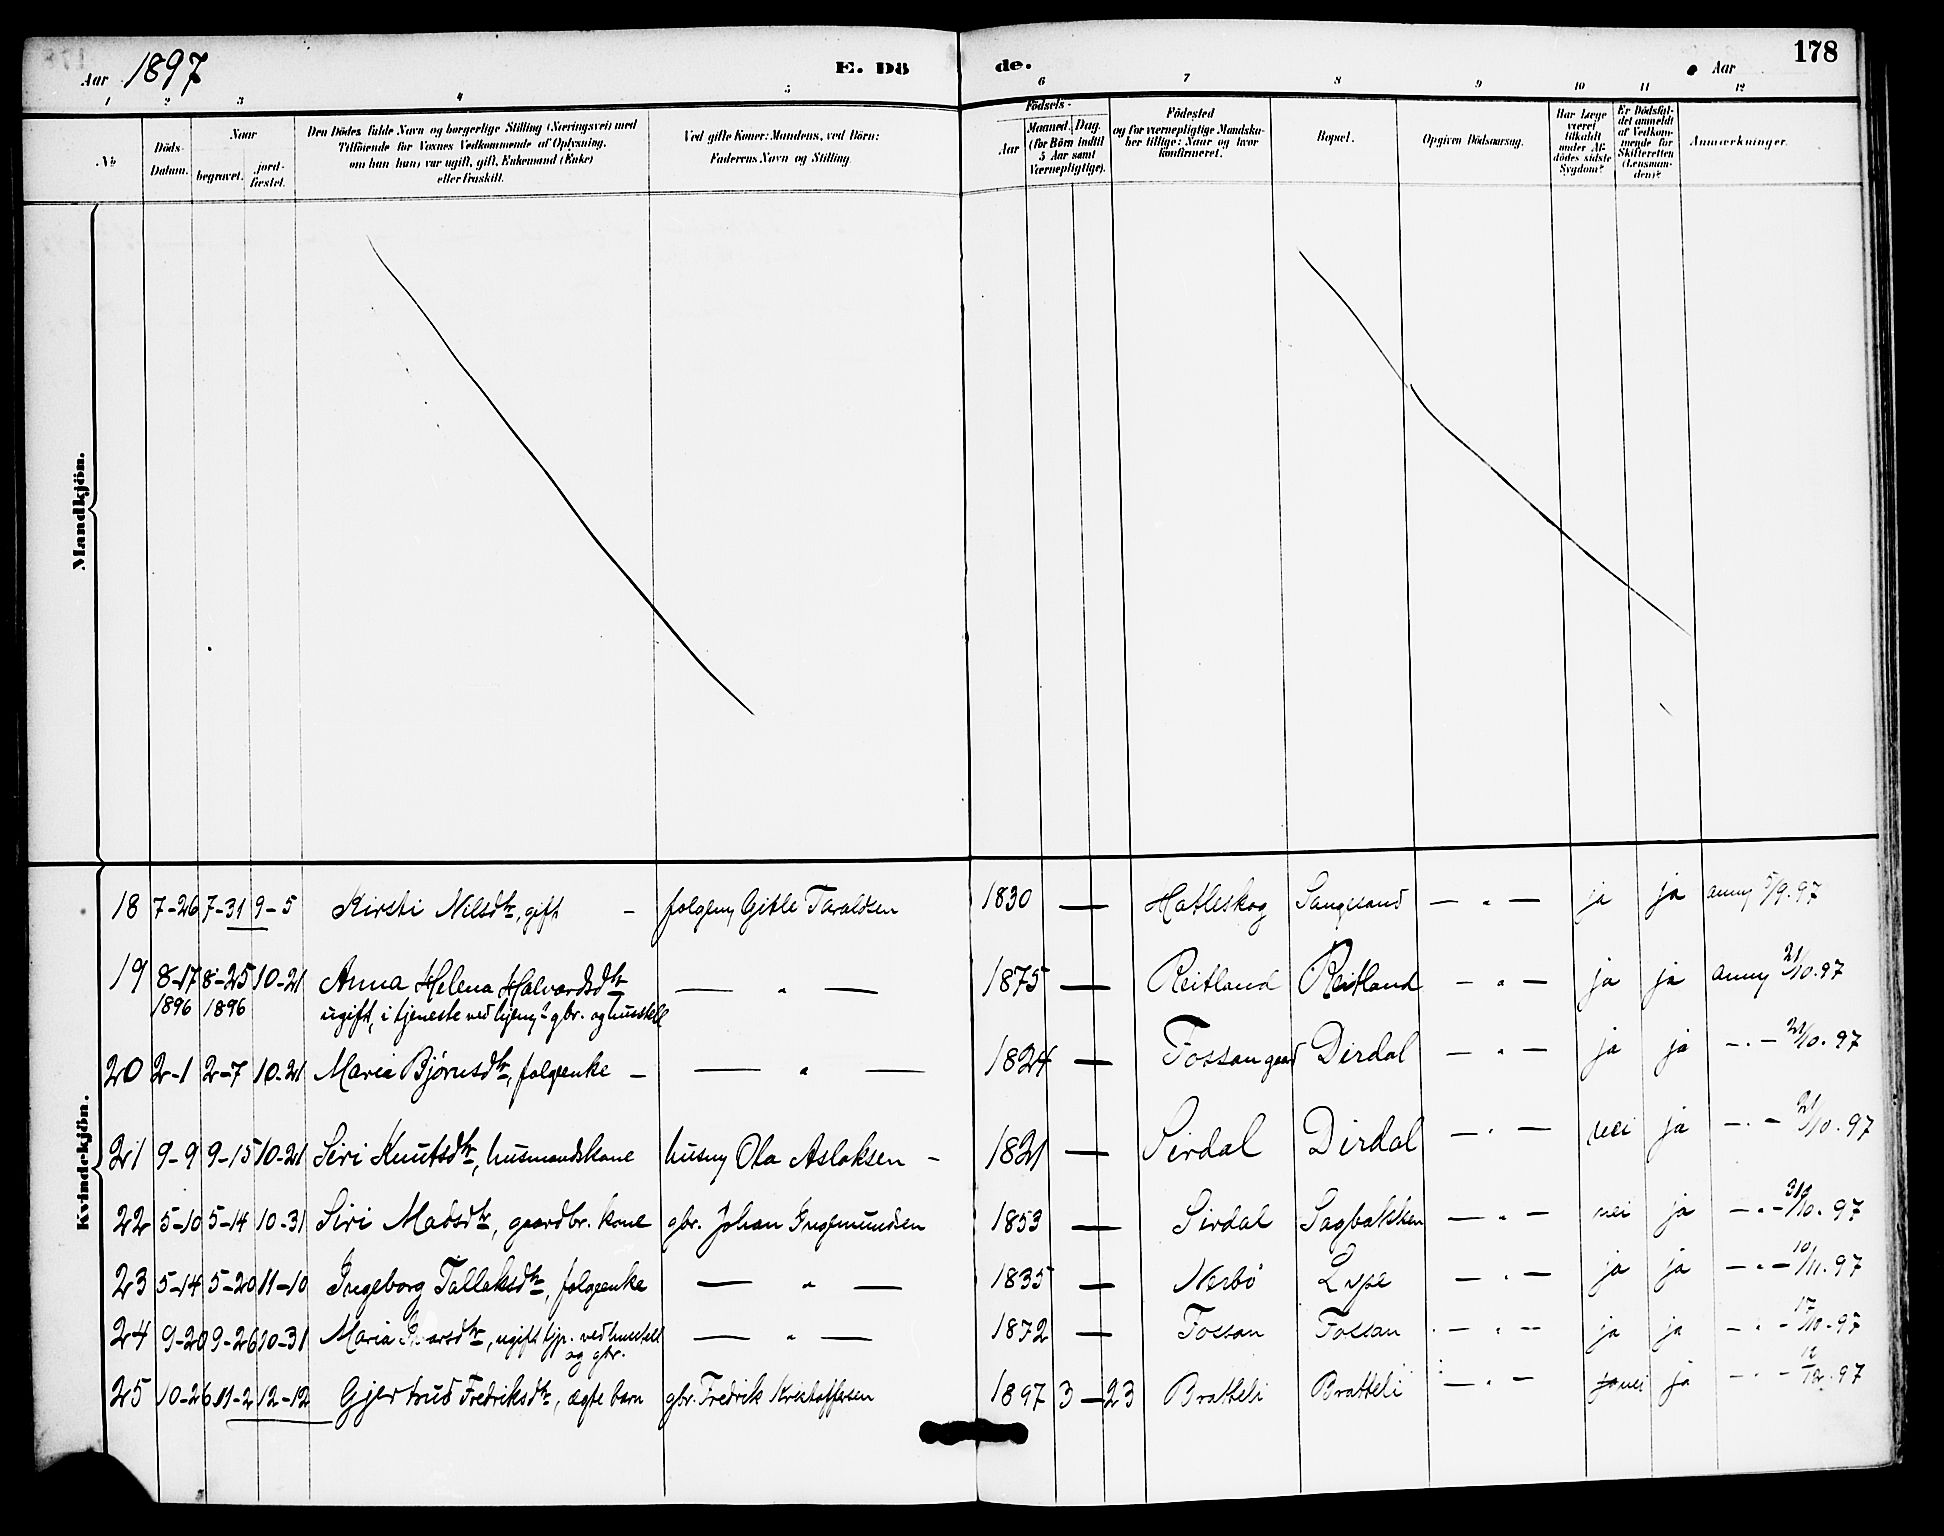 Aar 1897 E. Dö de. Aar 178
1 2 3 4 5 6 7 8 9 10 11 12
№
Döds-Datum.
Naar
begravet.
jordfæstet.
Den Dödes fulde Navn og borgerlige Stilling (Næringsvei) med
Tilföiende for Voxnes Vedkommende af Oplysning,
om han (hun) var ugift, gift, Enkemand (Enke)
eller fraskilt.
Ved gifte Koner: Mandens, ved Börn:
Faderens Navn og Stilling.
Födsels-
Aar
Maaned. Dag.
(for Börn indtil
5 Aar samt
Værnepligtige).
Födested
og for værnepligtige Mandskaber
tillige: Naar og hvor
konfirmeret.
Bopæl.
Opgiven Dödsaarsag.
Har Læge
været
tilkaldt
under Afdödes
sidste
Sygdom?
Er Dödsfaldet
anmeldt
af Vedkommende
for
Skifteretten
(Lensmanden)?
Anmærkninger.
Mandkjön.
Kvindekjön.
18 7-26 7-31 9-5 Kirsti Nilsdtr, gift – Gitle Taraldsen 1830 — Hatleskog Sangesand — " — ja ja anm 5/9.97
19 8-17 8-25 10-21 Anna Helena Halvardsdtr — " — 1875 — Reitland Reitland — " — ja ja anm 21/10.97
1896 1896 ugift, i tjeneste ved gbr. og husstell
20 2-1 2-7 10-21 Maria Bjørnsdtr, folgeenke – — " — 1824 — Fossan Dirdal — " — ja ja — " — 21/10.97
21 9-9 9-15 10-21 Siri Knutsdtr, husmandskone husm Ola Aslaksen – 1821 — Sirdal Dirdal — " — nei ja — " — 21/10.97
22 5-10 5-14 10-31 Siri Madsdtr, gaardbr. kone gbr. Johan Ingemundsen 1853 — Sirdal Sagbakken — " — nei ja — " — 31/10.97
23 5-14 5-20 11-10 Ingeborg Tallaksdtr, folgeenke — " — 1835 — Nærbö Espe — " — ja ja — " — 10/11.97
24 9-20 9-26 10-31 Maria Ivarsdtr, ugift tjn. ved husstell — " — 1872 — Fossan Fossan — " — ja ja — " — 17/10.97
og gbr.
25 10-26 11-2 12-12 Gjertrud Fredriksdtr, ægte barn gbr. Fredrik Kristoffersen 1897 3 — 23 Bratteli Bratteli — " — nei ja — " — 12/12.97